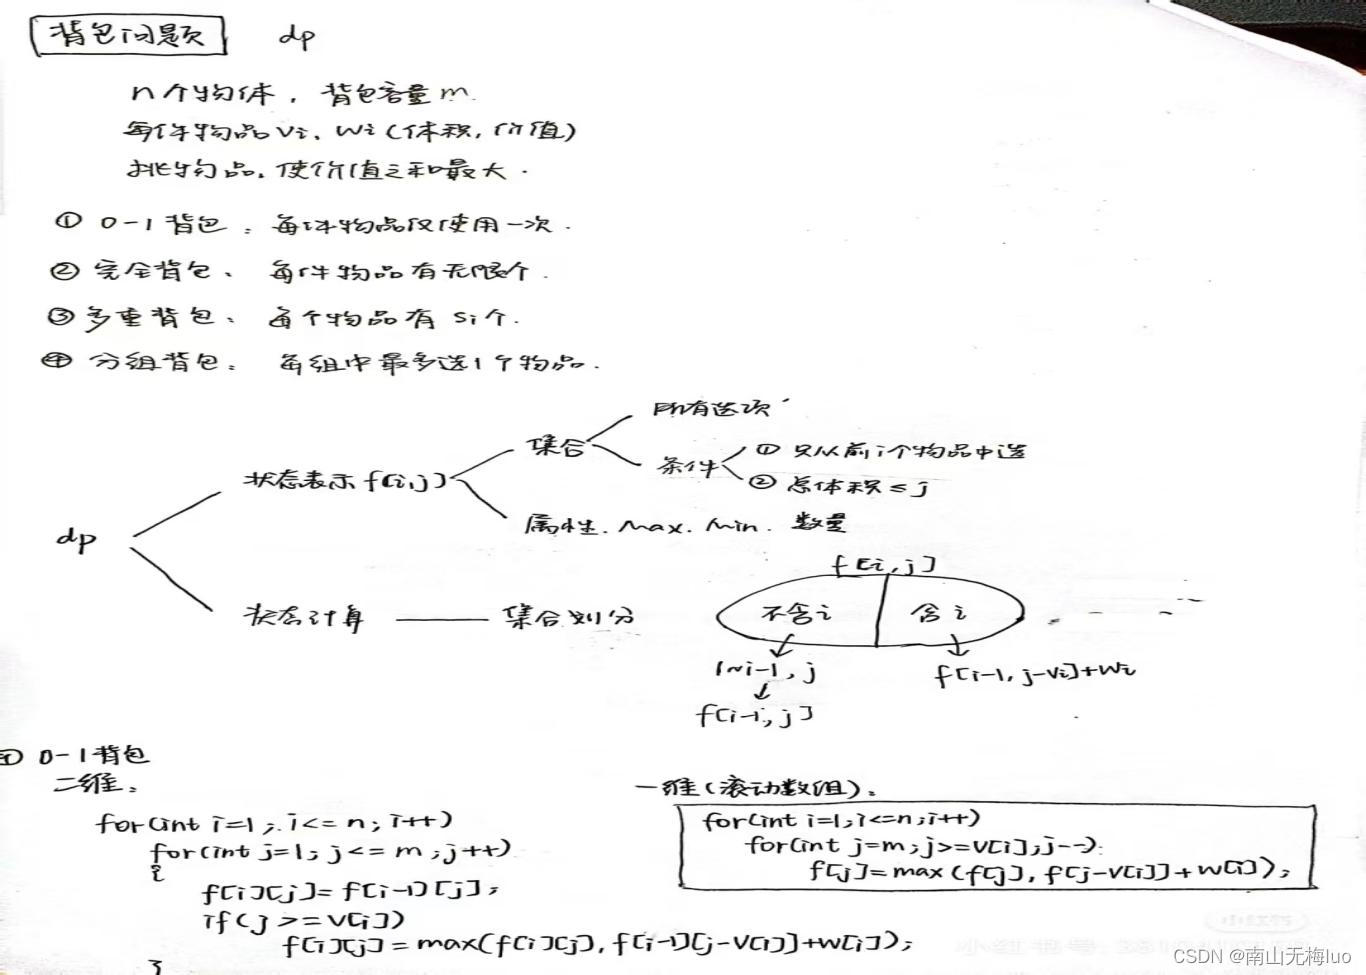 背包问题 dp
n个物体，背包容量m.
每件物品Vi、Wi(体积,价值)
挑物品,使价值之和最大.
① 0-1背包: 每件物品仅使用一次.
② 完全背包、每件物品有无限个.
③ 多重背包、每个物品有Si个.
④ 分组背包: 每组中最多选1个物品.
dp
状态表示f[i,j]
集合
所有选项
条件
① 只从前i个物品中选
② 总体积≤j
属性.Max.Min.数量
状态计算
集合划分
f[i,j]
不含i
含i
1~i-1,j
f[i-1,j]
f[i-1,j-Vi]+Wi
① 0-1背包
二维:
for(int i=1;i<=n;i++)
for(int j=1;j<=m;j++)
{
f[i][j]=f[i-1][j];
if(j>=V[i])
f[i][j]=max(f[i][j],f[i-1][j-V[i]]+W[i]);
}
一维(滚动数组):
for(int i=1;i<=n;i++)
for(int j=m;j>=V[i];j--)
f[j]=max(f[j],f[j-V[i]]+W[i]);
小红书
CSDN @南山无梅luo